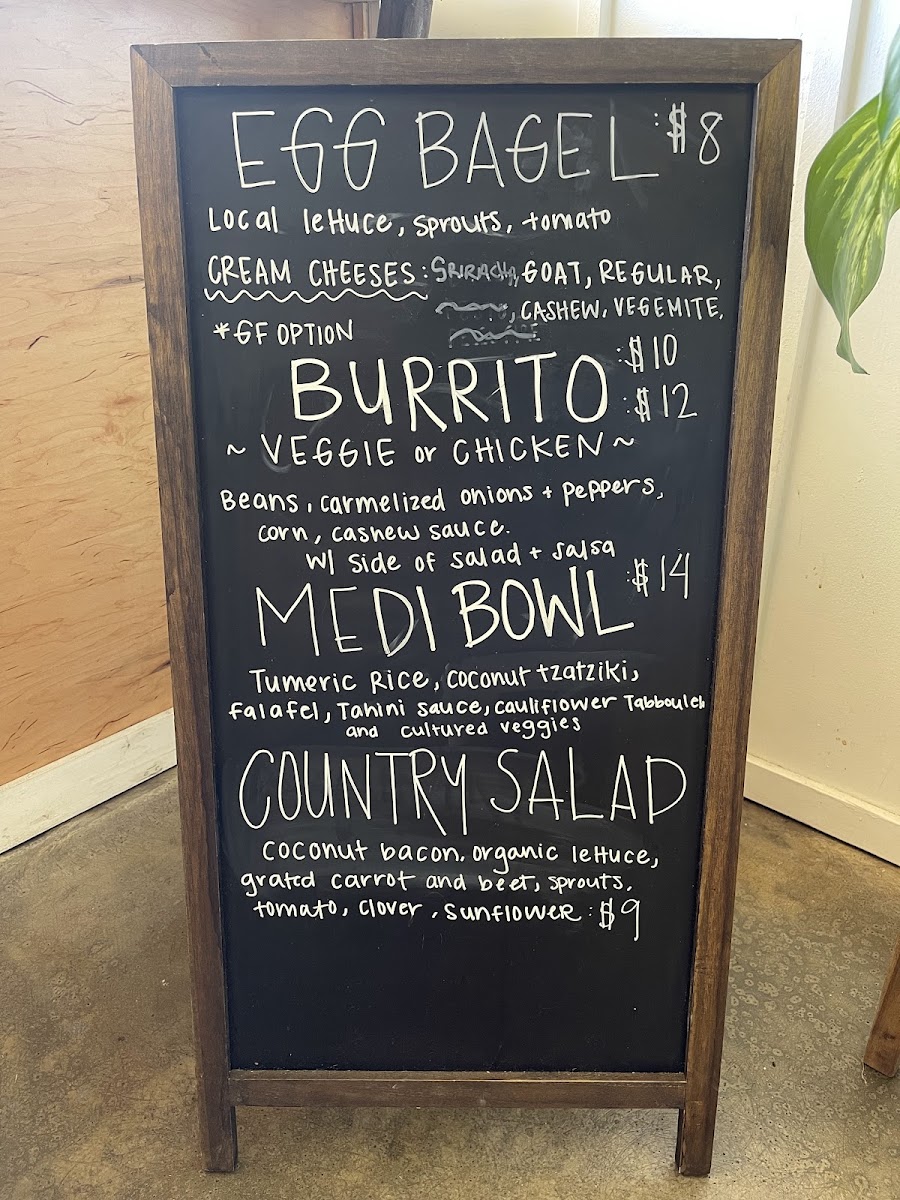 EGG BAGEL :$8
Local lettuce, sprouts, tomato
CREAM CHEESES: SRIRACHA, GOAT, REGULAR,
, CASHEW, VEGEMITE,
*GF OPTION
BURRITO :$10
:$12
~ VEGGIE or CHICKEN ~
Beans, carmelized onions + peppers,
corn, cashew sauce.
W/ side of salad + salsa
MEDI BOWL :$14
Tumeric Rice, coconut tzatziki,
falafel, Tahini sauce, cauliflower Tabbouleh
and cultured veggies
COUNTRY SALAD
coconut bacon, organic lettuce,
grated carrot and beet, sprouts,
tomato, clover, sunflower :$9